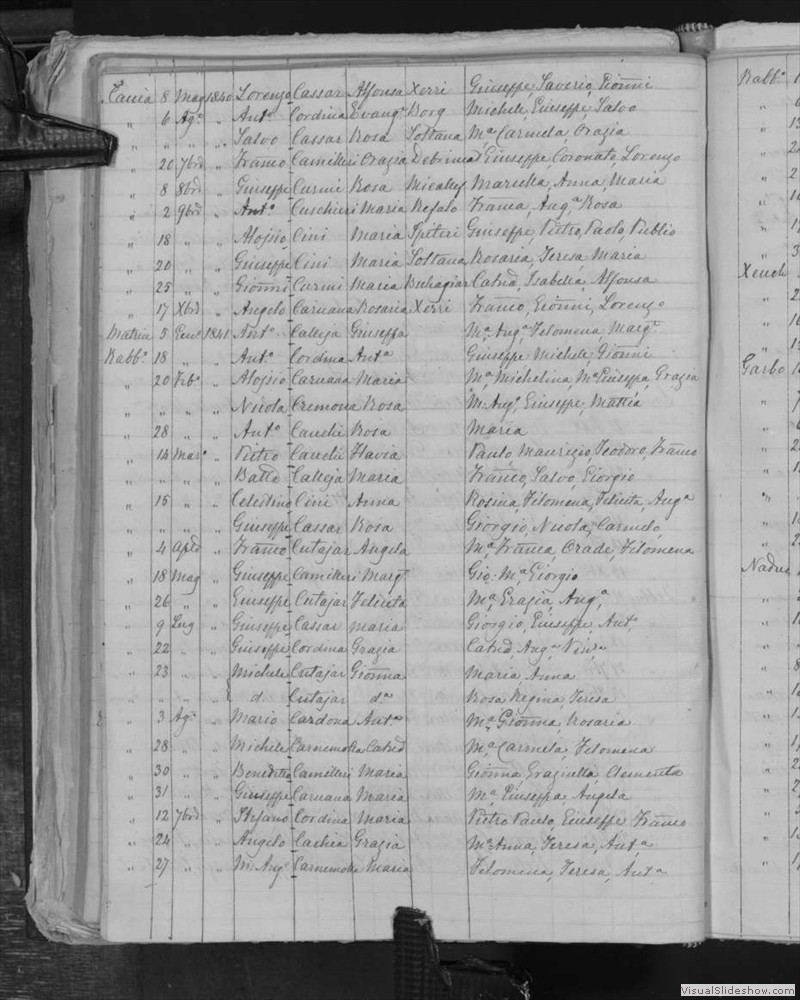 Xania 8 Mag 1840 Lorenzo Cassar Alfonsa Xerri Giuseppe, Saverio, Gionni
" 6 Ag.o " Ant.o Cordina Evang.a Borg Michele, Giuseppe, Salvo
" " " " Salvo Cassar Rosa Soltana M.a Carmela, Grazia
" 20 7bre " Franco Camilleri Grazia Debrincat Giuseppe, Coronato, Lorenzo
" 8 8bre " Giuseppe Curmi Rosa Micallef Marietta, Anna, Maria
" 2 9bre " Ant.o Cuschieri Maria Refalo Franca, Ang.a Rosa
" 18 " " Aloisio Cini Maria Spiteri Giuseppe, Pietro, Paolo, Publio
" 20 " " Giuseppe Cini Maria Soltana Rosaria, Teresa, Maria
" 25 " " Gionni Curmi Maria Buhagiar Catrid, Isabella, Alfonsa
" 17 Xbre " Angelo Caruana Rosaria Xerri Franco, Gionni, Lorenzo
Matrice 5 Gen.o 1841 Ant.o Calleja Giuseppa M.a Ang.a Filomena, Marg.t
Rabb.o 18 " " Ant.o Cordina Ant.a Giuseppe Michele Gionni
" 20 Feb.o " Aloisio Caruana Maria M.a Michelina, M.a Giuseppa, Grazia
" " " " Nicola Cremona Rosa M. Ang.o, Giuseppe, Mattia
" 28 " " Ant.o Cauchi Rosa Maria
" 14 Mar.o " Pietro Cauchi Flavia Paulo Maurizio, Teodoro, Franco
" " " " Batta Calleja Maria Franco, Salvo, Giorgio
" 15 " " Celestino Cini Anna Rosina, Filomena, Felicita, Ang.a
" " " " Giuseppe Cassar Rosa Giorgio, Nicola, Carmelo
" 4 Aple " Franco Cutajar Angela M.a Franca, Filomena
" 18 Mag " Giuseppe Camilleri Marg.t Gio: M.a Giorgio
" 26 " " Giuseppe Cutajar Felicita M.a Grazia, Ang.a
" 9 Lug " Giuseppe Cassar Maria Giorgio, Giuseppe, Ant.o
" 22 " " Giuseppe Cordina Grazia Catrid, Ang.a
" 23 " " Michele Cutajar Gionna Maria, Anna
" " " " d. Cutajar d.a Rosa Regina, Teresa
" 3 Ag.o " Mario Cardona Ant.a M.a Gionna, Rosaria
" 28 " " Michele Carnemolla Catrid M.a Carmela, Filomena
" 30 " " Benedetto Camilleri Maria Gionna, Graziella, Clementa
" 31 " " Giuseppe Caruana Maria M.a Giuseppa, Angela
" 12 7bre " Stefano Cordina Maria Pietro Paulo, Giuseppe Franco
" 24 " " Angelo Cachia Grazia M.a Anna, Teresa, Ant.a
" 27 " " M. Ang.o Carnemolla Maria Filomena, Teresa, Ant.a
Rabb.o
Xeuch
Garbo
Nadur
VisualSlideshow.com